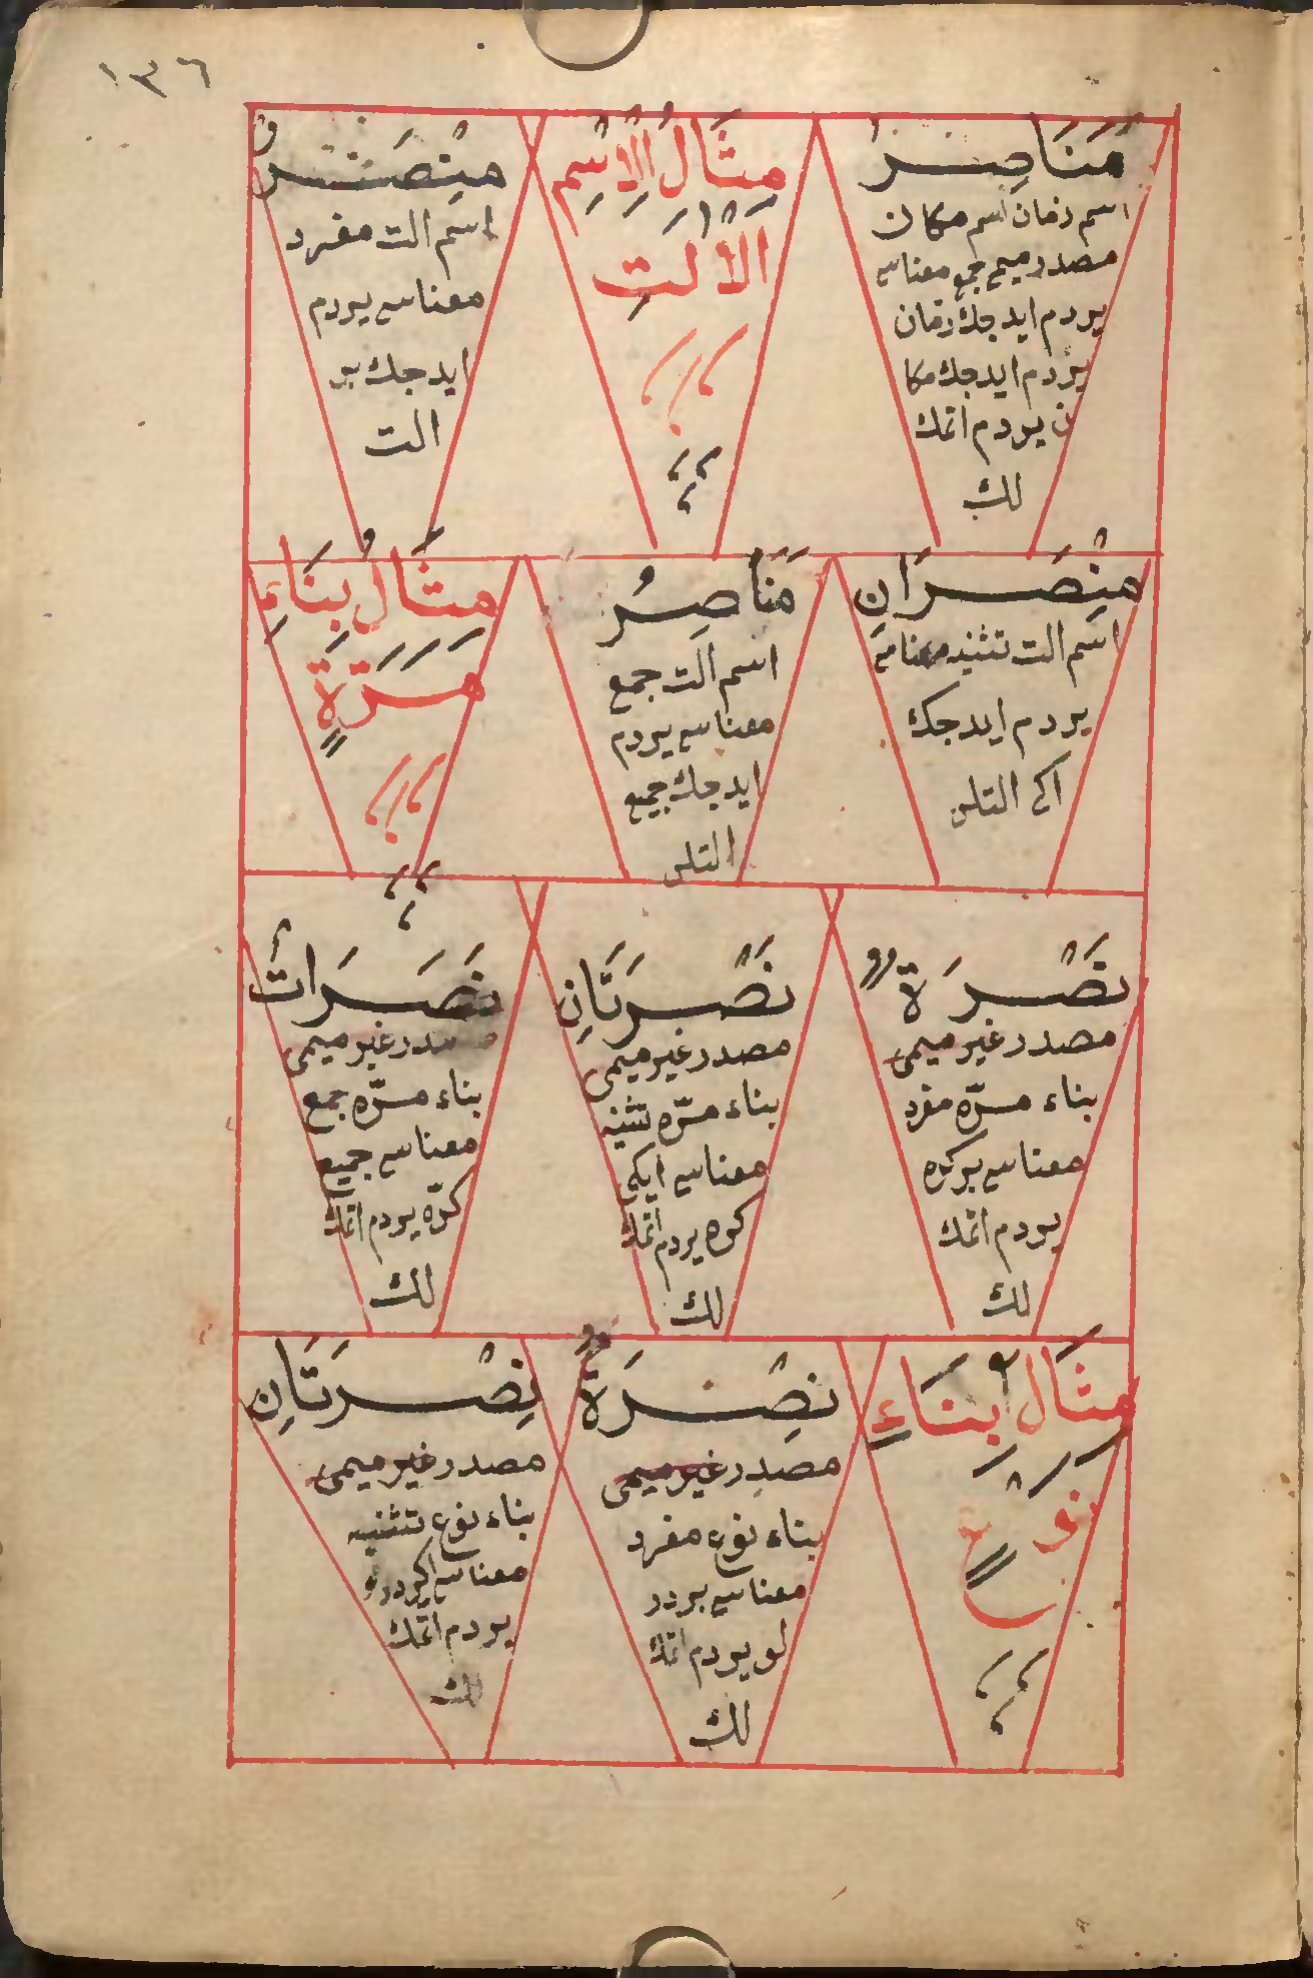 ١٣٦
مَنَاصِرُ
اسم زمان اسم مكان
مصدر ميمى جمع معناسى
يردم ايدجك زمان
يردم ايدجك مكا
ن يردم اتمك
لك
مِثَالُ الْاِسْمِ
الْاٰلَتِ
مِنْصَرٌ
اسم الت مفرد
معناسى يردم
ايدجك بر
الت
مِنْصَرَانِ
اسم الت تثنيه معناسى
يردم ايدجك
اكى التلر
مَنَاصِرُ
اسم الت جمع
معناسى يردم
ايدجك جميع
التلر
مِثَالُ بِنَاءِ
مَرَّةٍ
نَصْرَةٌ
مصدر غير ميمى
بناء مرّه مفرد
معناسى بر كره
يردم اتمك
لك
نَصْرَتَانِ
مصدر غير ميمى
بناء مرّه تثنيه
معناسى ايكى
كره يردم اتمك
لك
نَصَرَاتٌ
مصدر غير ميمى
بناء مرّه جمع
معناسى جميع
كرّه يردم اتمك
لك
مِثَالُ بِنَاءِ
نَوْعٍ
نِصْرَةٌ
مصدر غير ميمى
بناء نوع مفرد
معناسى بر در
لو يردم اتمك
لك
نِصْرَتَانِ
مصدر غير ميمى
بناء نوع تثنيه
معناسى اكى درلو
يردم اتمك
لك